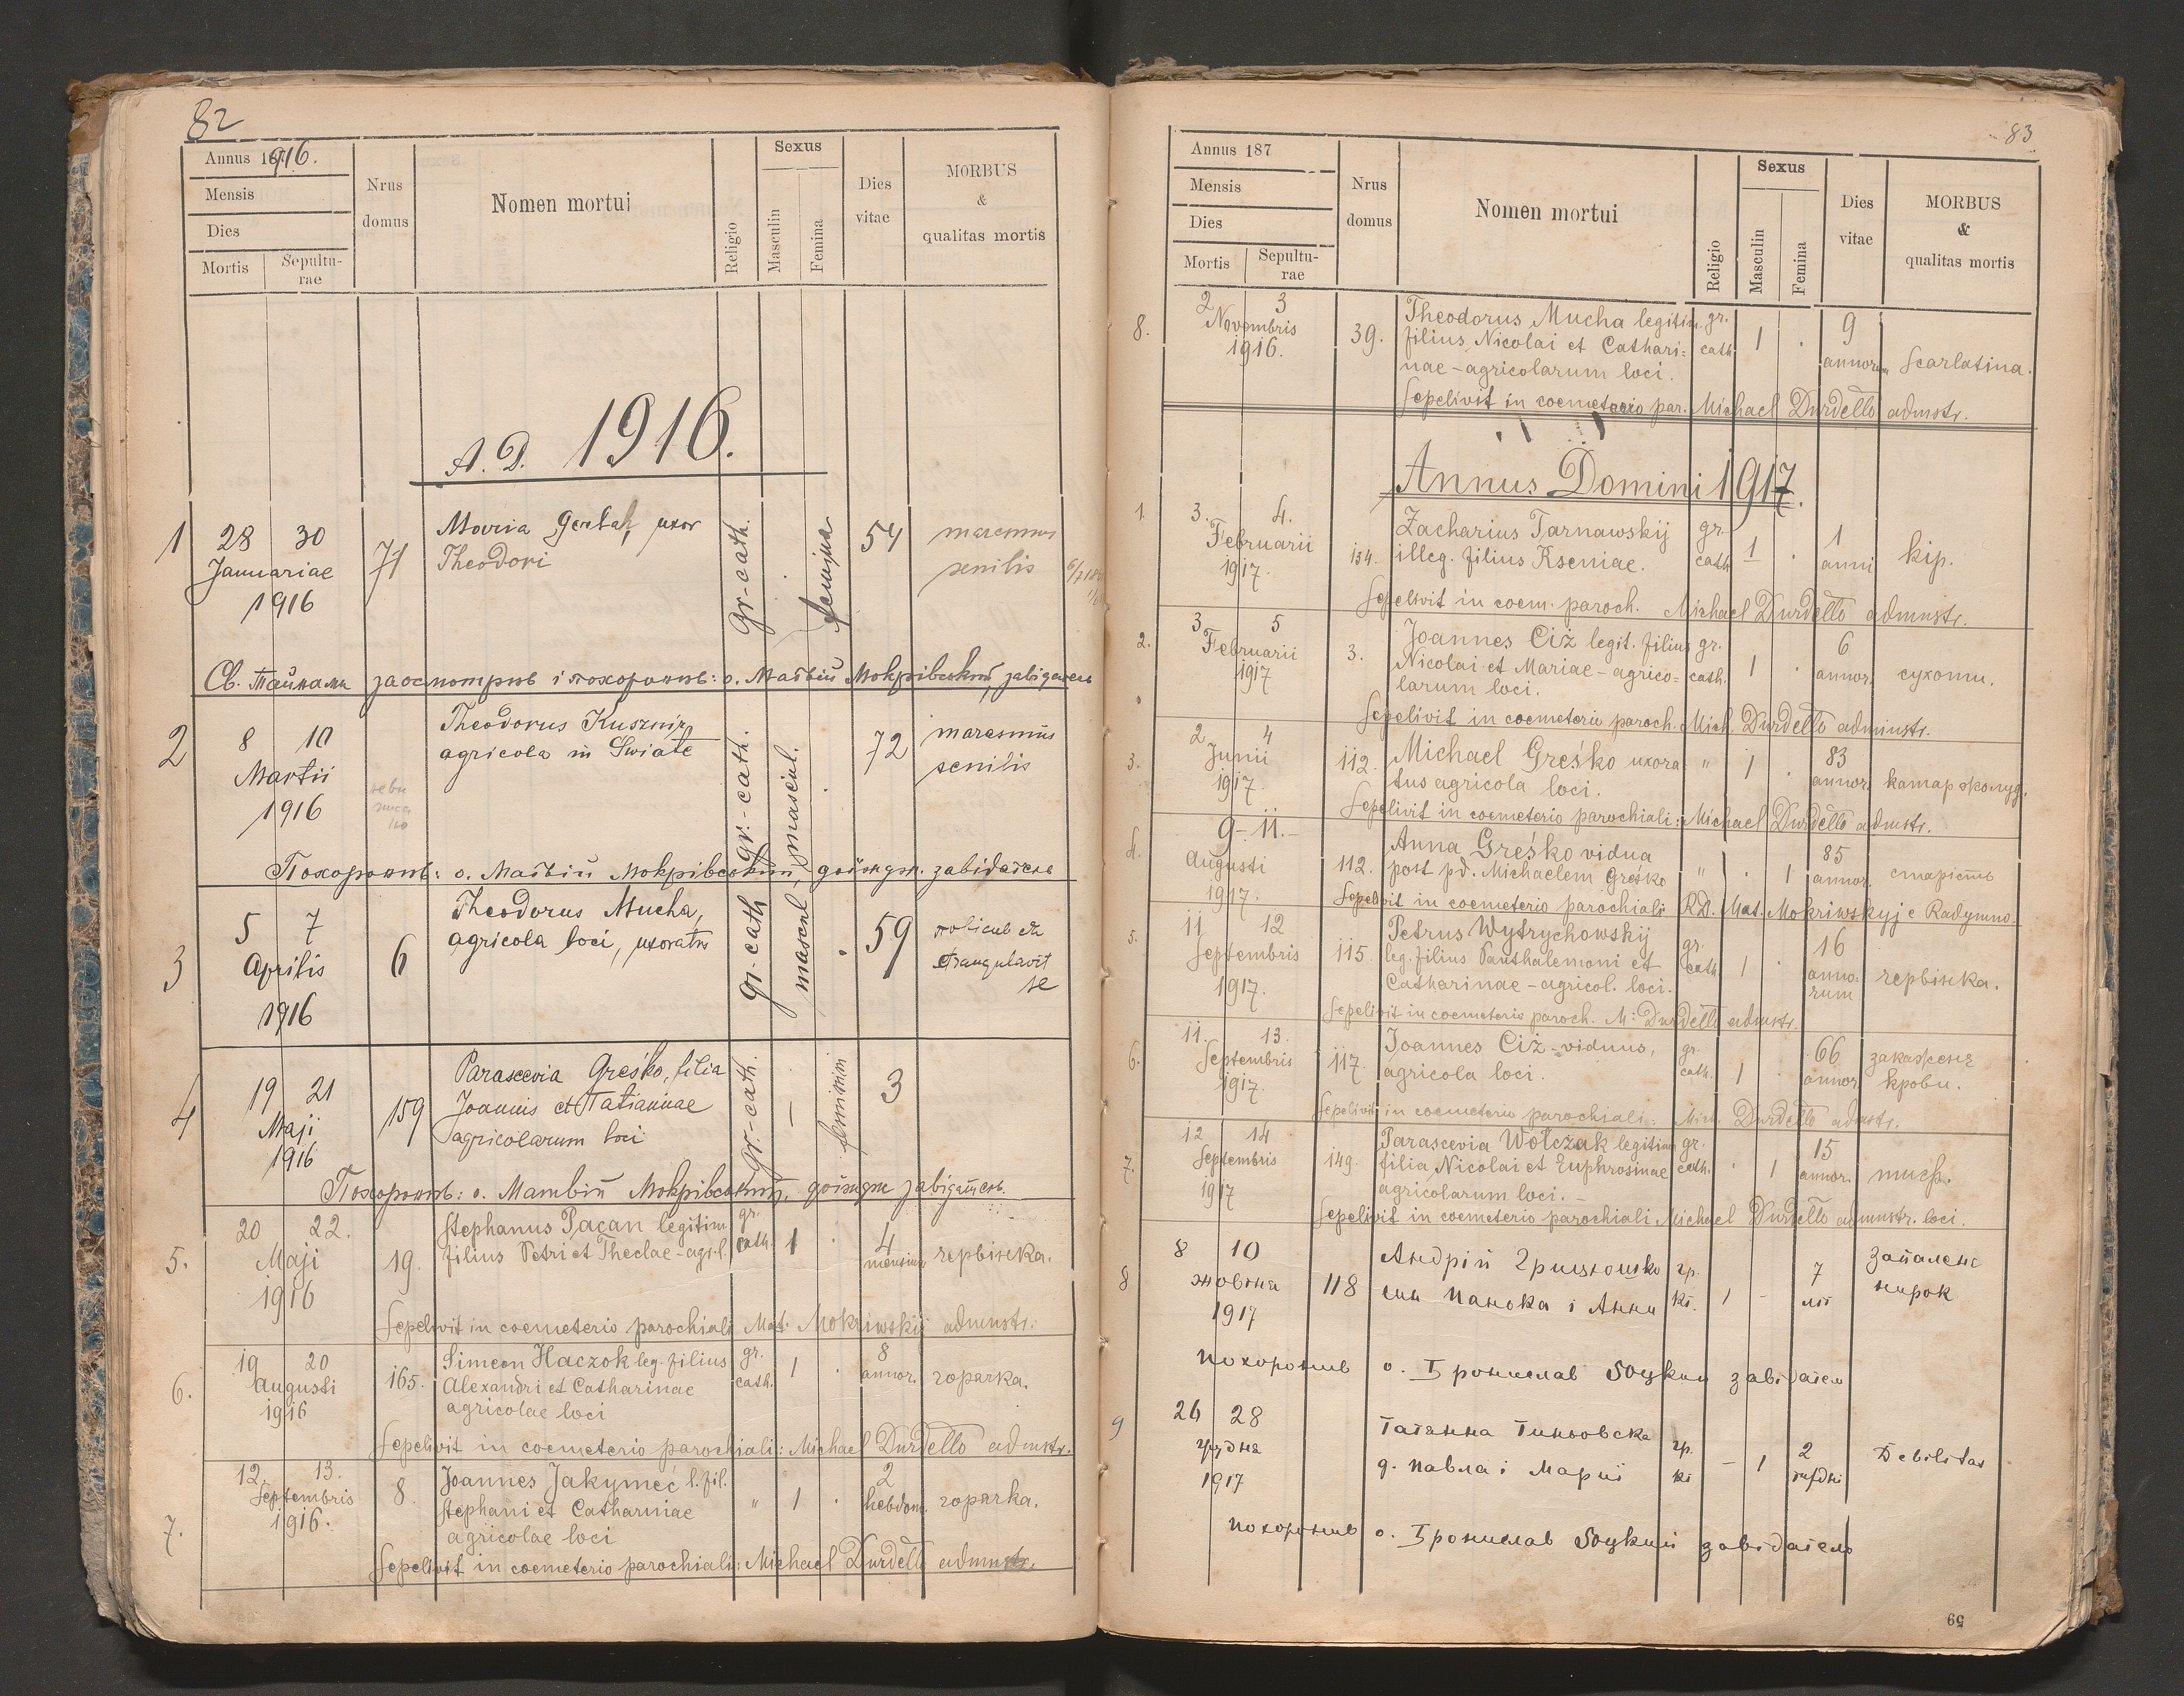 82
Annus 1916.
Mensis
Dies
Mortis Sepulturae
Nrus domus
Nomen mortui
Religio
Sexus
Masculin
Femina
Dies vitae
MORBUS
&
qualitas mortis
A. D. 1916.
1 28 30 Januariae 1916
71
Maria uxor
Theodori
gr-cath.
femina
54
marasmus
senilis
Св. Тайнами заосмотрив і похоронив: о. Матвій Мокрівский, завідатель
2 8 10 Martii 1916
Theodorus Kusznir,
agricola in Świete
gr.-cath.
mascul.
72
marasmus
senilis
Похоронив: о. Матвій Мокрівский, доїзджи. завідатель
3 5 7 Aprilis 1916
6
Theodorus Mucha,
agricola loci, uxoratus
gr.-cath
mascul.
59
strangulavit
se
4 19 21 Maji 1916
159
Parascevia Greśko, filia
Joannis et Tatiannae
agricolarum loci
gr.-cath.
–
feminin
3
Похоронив: о. Матвій Мокрівский, доїзджи завідатель.
5. 20 22. Maji 1916
19.
Stephanus Pacan legitim.
filius Petri et Theclae – agr. l.
gr. cath.
1
4 mensium
червінка.
Sepelivit in coemeterio parochiali Mat. Mokriwskij admnstr.
6. 19 20 Augusti 1916
165.
Simeon Haczok leg. filius
Alexandri et Catharinae
agricolae loci
gr. cath.
1
8 annor.
горячка.
Sepelivit in coemeterio parochiali: Michael Durdełło admnstr.
7. 12. 13. Septembris 1916.
8.
Joannes Jakymeć l. fil.
Stephani et Catharniae
agricolae loci
"
1
2 hebdom.
горячка.
Sepelivit in coemeterio parochiali: Michael Durdełło admnstr.
83
Annus 187
Mensis
Dies
Mortis Sepulturae
Nrus domus
Nomen mortui
Religio
Sexus
Masculin
Femina
Dies vitae
MORBUS
&
qualitas mortis
8. 2 3 Novembris 1916.
39.
Theodorus Mucha legitim.
filius Nicolai et Cathari=
nae – agricolarum loci.
gr. cath
1
9 annorum
Scarlatina.
Sepelivit in coemeterio par. Michael Durdełło admstr.
Annus Domini 1917.
1. 3. 4. Februarii 1917.
134.
Zacharius Tarnawskij
illeg. filius Kseniae.
gr. cath
1
1 anni
kір.
Sepelivit in coem. paroch. Michael Durdełło admnstr.
2. 3 5 Februarii 1917
3.
Joannes Ciż legit. filius
Nicolai et Mariae – agrico=
larum loci.
gr. cath.
1
6 annor.
сухоти.
Sepelivit in coemeterio paroch. Mich. Durdełło adminstr.
3. 2 4 Junii 1917.
112.
Michael Greśko uxora
tus agricola loci.
"
1
83 annor.
катар жолуд.
Sepelivit in coemeterio parochiali: Michael Durdełło admstr.
4. 9 – 11. – Augusti 1917.
112.
Anna Greśko vidua
post pd. Michaelem Greśko
"
1
85 annor.
старість
Sepelivit in coemeterio parochiali RD. Mat. Mokriwskyj e Radymno.
5. 11 12 Septembris 1917.
115.
Petrus Wytrychowskij
leg. filius Panthalemoni et
Catharinae – agricol. loci.
gr. cath
1
16 anno=
rum
червінка.
Sepelivit in coemeterio paroch. M: Durdełło admstr.
6. 11. 13. Septembris 1917.
117.
Joannes Ciż – viduus,
agricola loci.
gr. cath.
1
66 annor.
закаженє
крови.
Sepelivit in coemeterio parochiali: Mich. Durdełło admstr.
7. 12 14 Septembris 1917
149.
Parascevia Wołczak legitima
filia Nicolai et Euphrosinae
agricolarum loci. –
gr. cath.
1
15 annor.
тиф.
Sepelivit in coemeterio parochiali. Michael Durdełło admnstr. loci.
8 8 10 жовтня 1917
118
Андрій
син Панька і Анни
гр. кт.
1 –
7 літ
запаленє
нирок
похоронив о. Броніслав Яоцкий завідатель
9 26 28 грудня 1917
Татянна Тиньовска
д. Павла і Марії
гр. кт
– 1
2 тиждні
Debilitas
похоронив о. Броніслав завідатель
69